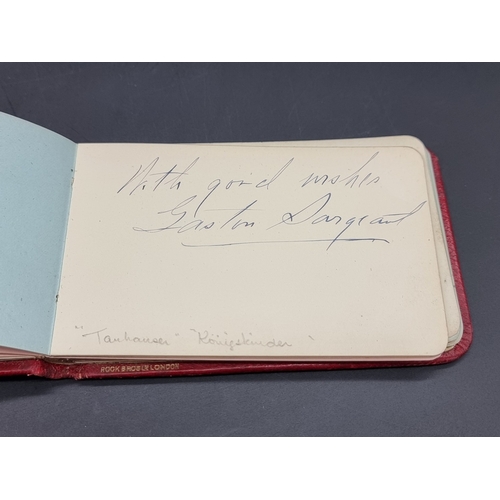 With good wishes
Gaston Sargeant
"Tanhauser" "Königskinder"
LONDON